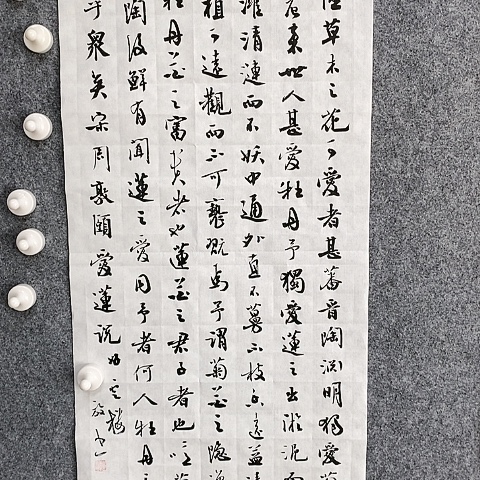 草木之花可愛者甚蕃晉陶淵明獨愛菊
唐來世人甚愛牡丹予獨愛蓮之出淤泥而
濯清漣而不妖中通外直不蔓不枝香遠益清
植可遠觀而不可褻翫焉予謂菊花之隱逸
牡丹花之富貴者也蓮花之君子者也噫菊
陶後鮮有聞蓮之愛同予者何人牡丹之
乎衆矣宋周敦頤愛蓮說